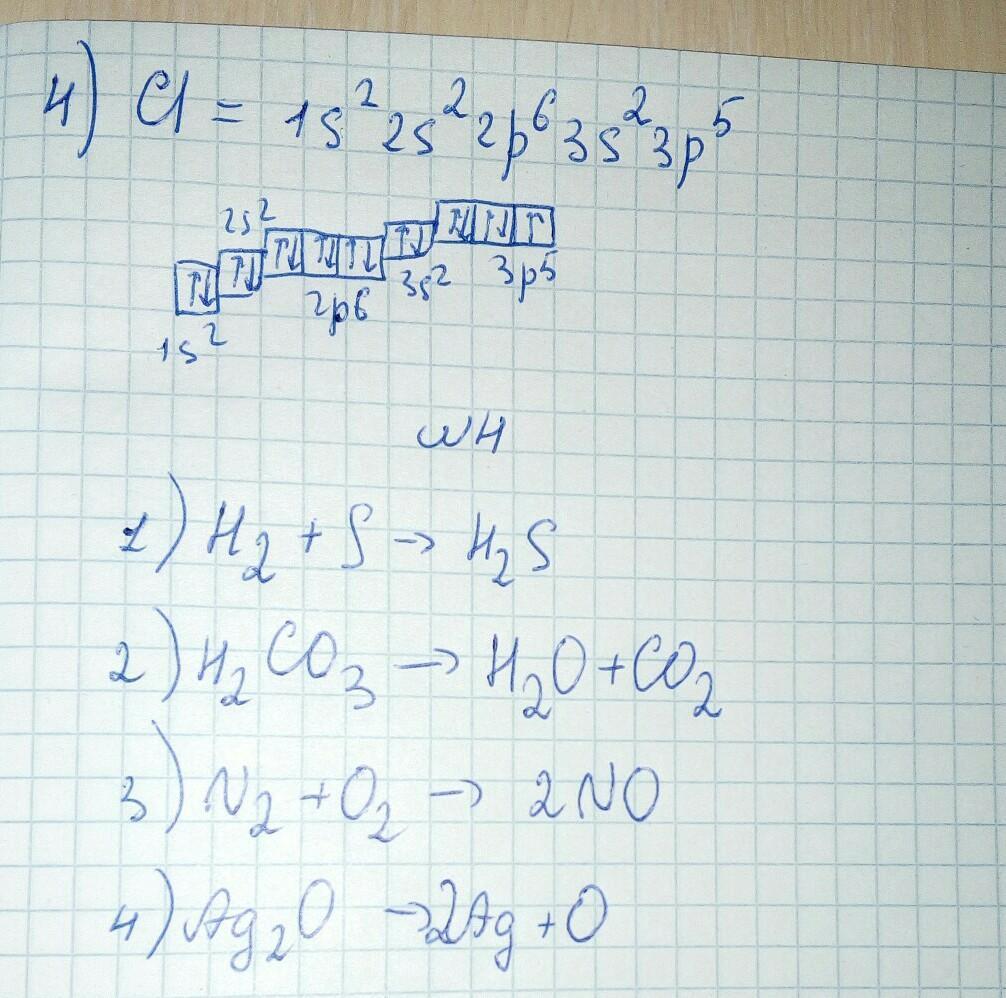 4) Cl = 1s² 2s² 2p⁶ 3s² 3p⁵
2s²
↑↓ ↑↓ ↑↓ ↑↓ ↑↓ ↑↓ ↑↓ ↑↓ ↑
1s² 2p6 3s² 3p5
1) H₂ + S → H₂S
2) H₂CO₃ → H₂O + CO₂
3) N₂ + O₂ → 2NO
4) Ag₂O → 2Ag + O